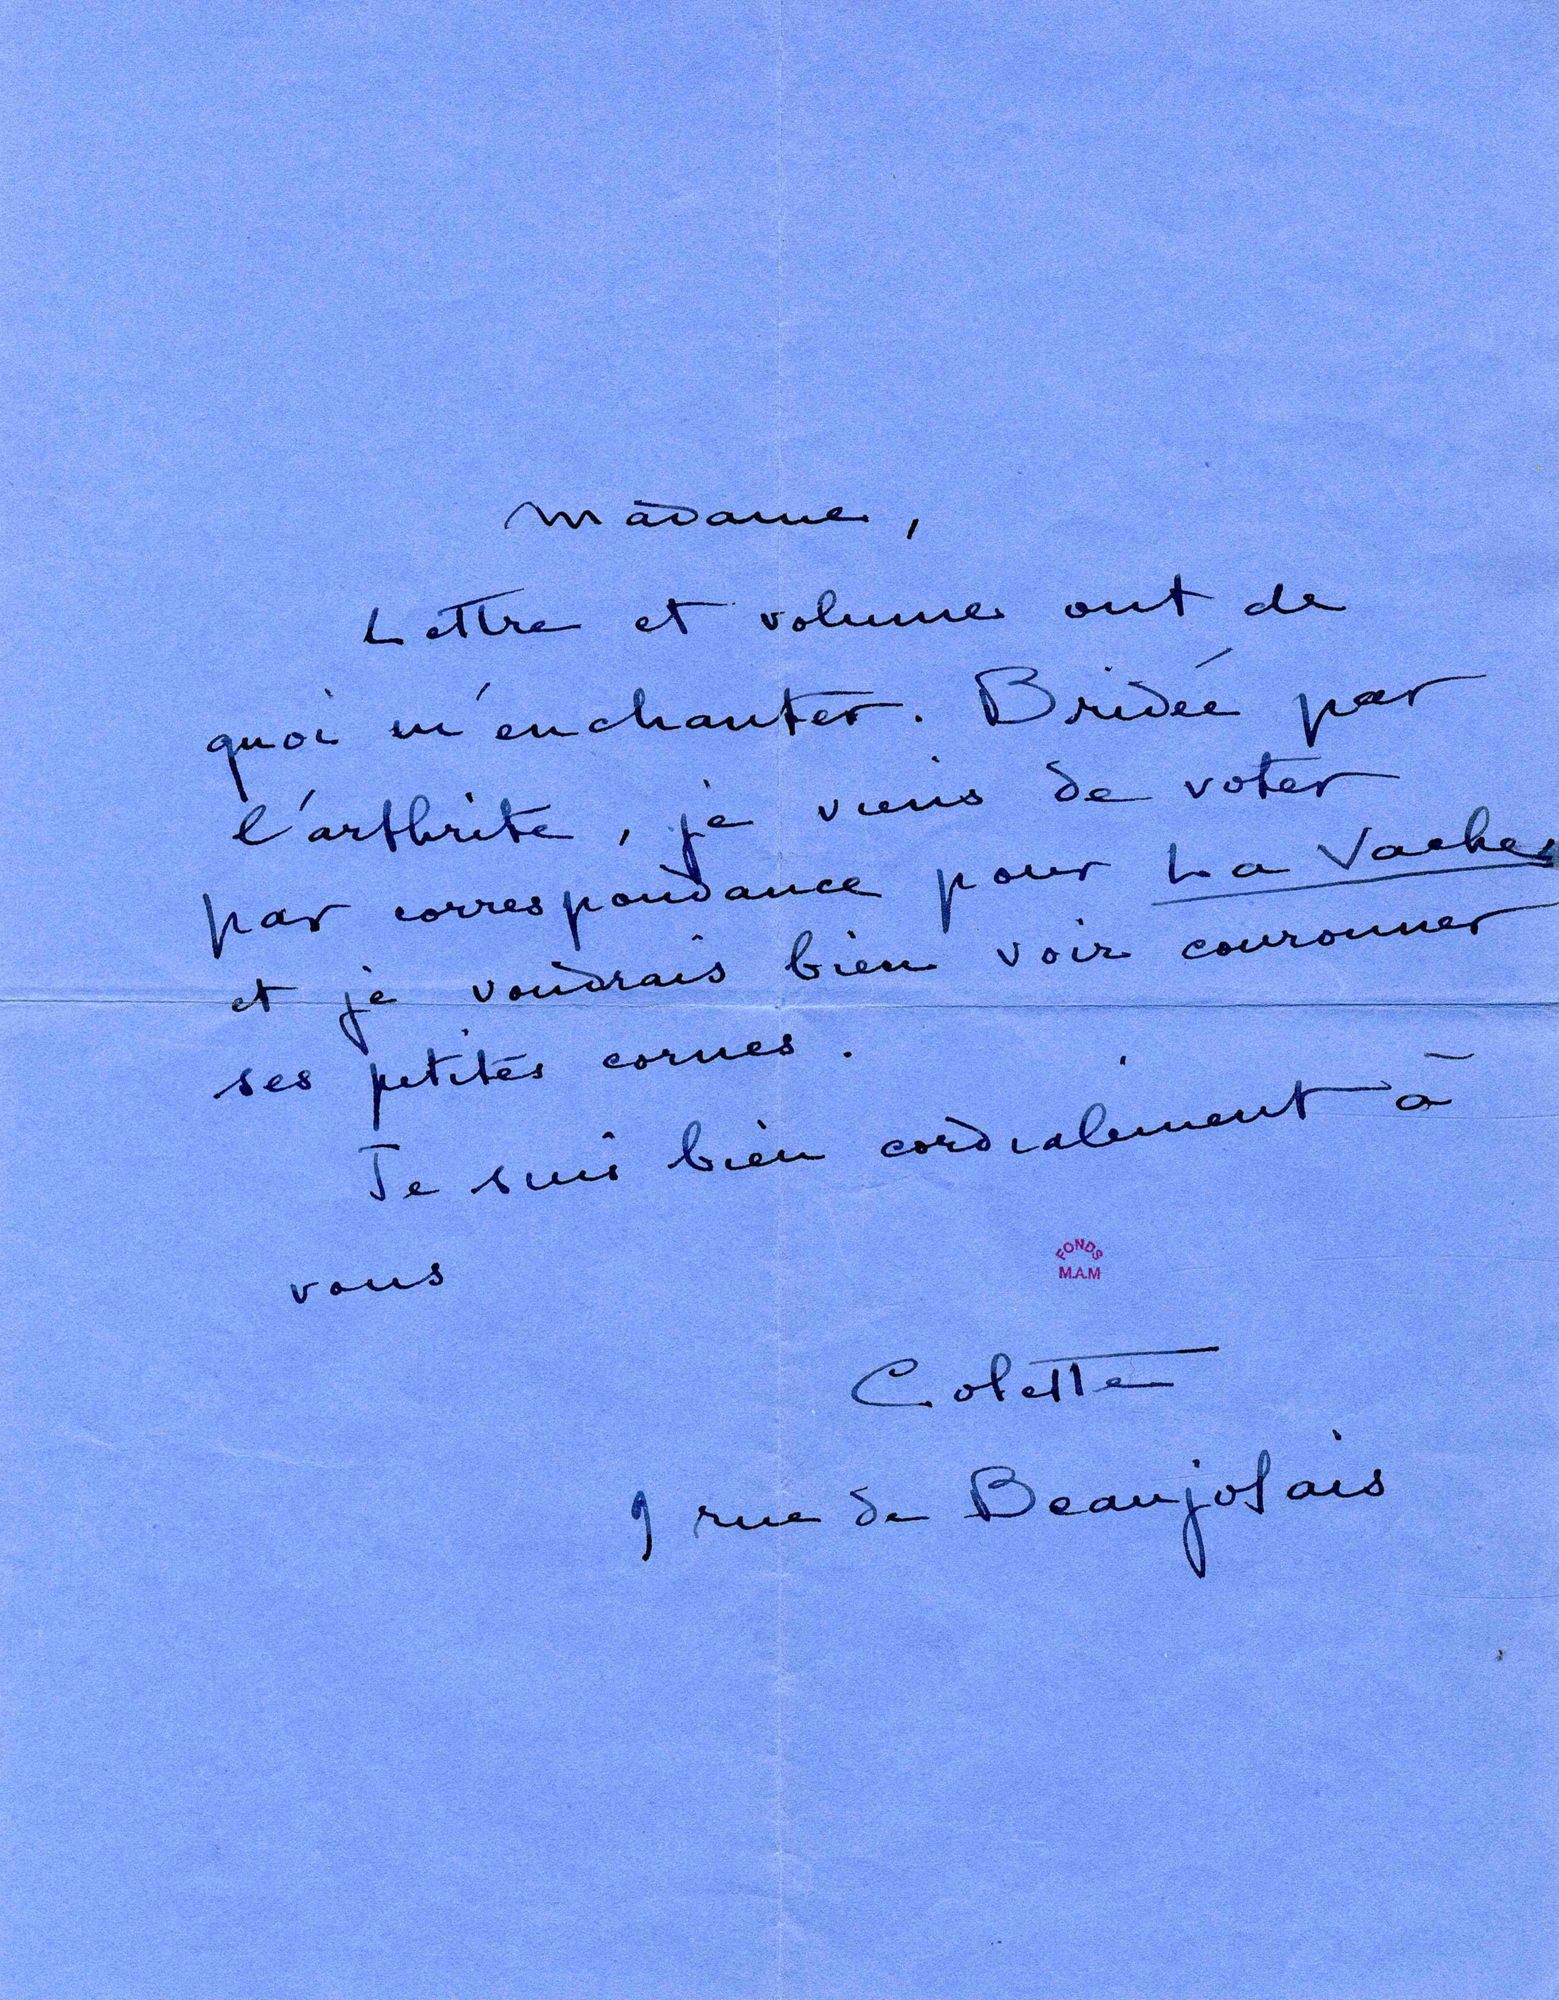 Madame,
Lettre et volume ont de
quoi m'enchanter. Bridée par
l'arthrite, je viens de voter
par correspondance pour La Vache
et je voudrais bien voir couronner
ses petites cornes.
Je suis bien cordialement à
vous
FONDS
M.A.M
Colette
9 rue de Beaujolais